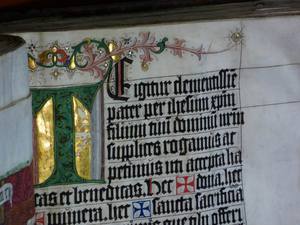 TE igitur clementissie
pater per ihesum xpm
filium tuu dominu nrm
supplices rogamus ac
petimus uti accepta ha
eas et benedicas. Hec ✠ dona. hec
✠ munera. hec ✠ sancta sacrificia
que tibi offeri